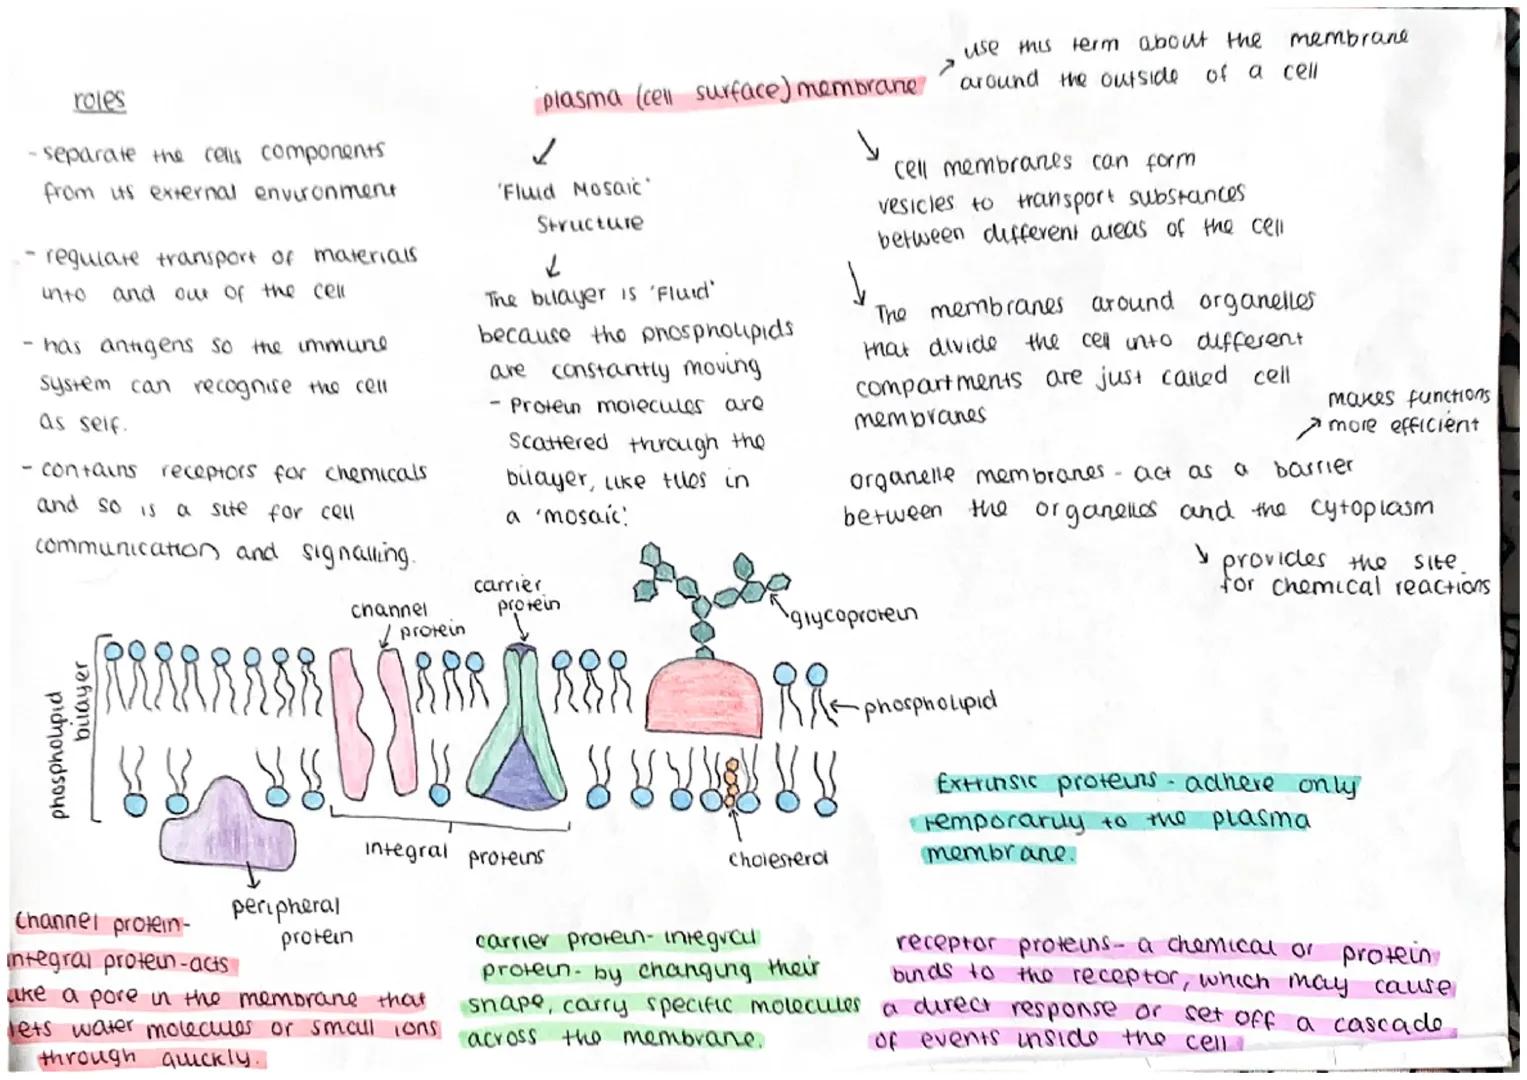 roles
- separate the cells components
from its external environment
- regulate transport of materials
into and out of the cell
- has antigens so the immune
system can recognise the cell
as self.
- contains receptors for chemicals
and so is a site for cell
communication and signalling.
plasma (cell surface) membrane
use this term about the membrane
around the outside of a cell
'Fluid Mosaic'
Structure
The bilayer is 'Fluid'
because the phospholipids
are constantly moving
- Protein molecules are
scattered through the
bilayer, like tiles in
a 'mosaic'.
cell membranes can form
vesicles to transport substances
between different areas of the cell
The membranes around organelles
that divide the cell into different
compartments are just called cell
membranes
makes functions
more efficient
organelle membranes - act as a barrier
between the organelles and the cytoplasm
provides the site
for chemical reactions
phospholipid
bilayer
channel
protein
carrier
protein
glycoprotein
phospholipid
integral proteins
cholesterol
peripheral
protein
Extrinsic proteins - adhere only
temporarily to the plasma
membrane.
Channel protein-
integral protein - acts
like a pore in the membrane that
lets water molecules or small ions
through quickly.
carrier protein - integral
protein - by changing their
shape, carry specific molecules
across the membrane.
receptor proteins - a chemical or protein
binds to the receptor, which may cause
a direct response or set off a cascade
of events inside the cell